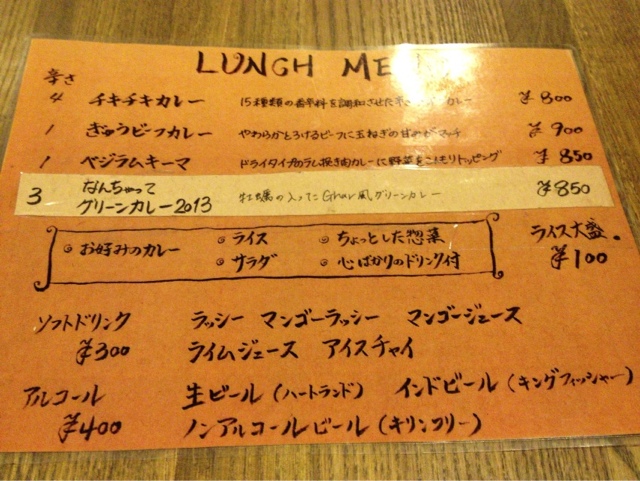 LUNCH ME
辛さ
4 チキチキカレー 15種類の香辛料を調和させた カレー ¥800
1 ぎゅうビーフカレー やわらかとろけるビーフに玉ねぎの甘みがマッチ ¥900
1 ベジラムキーマ ドライタイプのラム挽き肉カレーに野菜をこんもりトッピング ¥850
3 なんちゃって
グリーンカレー2013 牡蠣の入ったGhar風グリーンカレー ¥850
お好みのカレー ライス ちょっとした惣菜 ライス大盛
サラダ 心ばかりのドリンク付 ¥100
ソフトドリンク ラッシー マンゴーラッシー マンゴージュース
¥300 ライムジュース アイスチャイ
アルコール 生ビール(ハートランド) インドビール(キングフィッシャー)
¥400 ノンアルコールビール(キリンフリー)